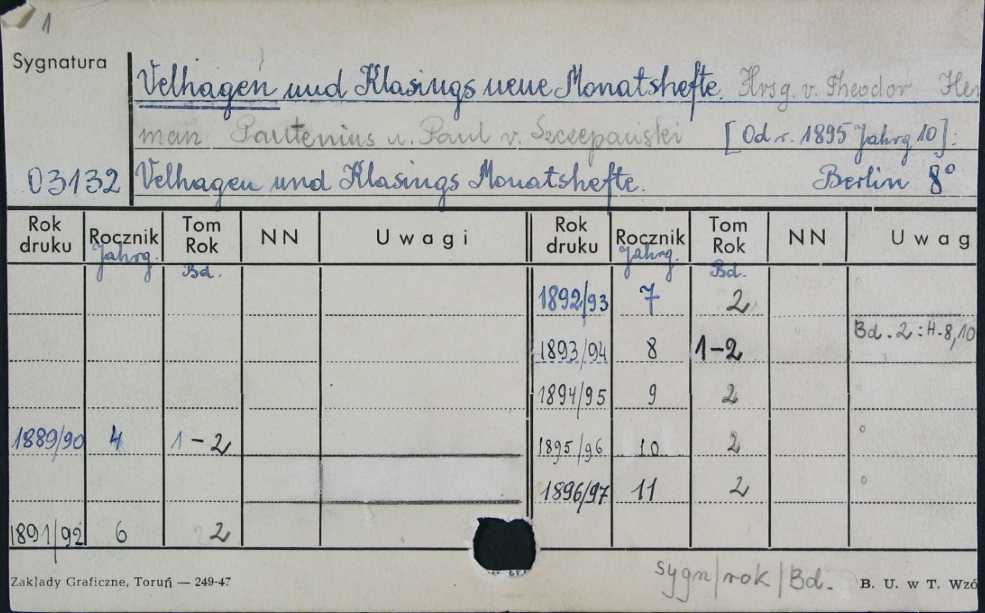 1
Sygnatura
Velhagen und Klasings neue Monatshefte. Hrsg. v. Theodor Her
man Pantenius u. Paul v. Szczepański [Od r. 1895 Jahrg 10]:
03132 Velhagen und Klasings Monatshefte. Berlin 8°
Rok druku Rocznik Jahrg. Tom Rok Bd. NN Uwagi Rok druku Rocznik Jahrg. Tom Rok Bd. NN Uwag
1892/93 7 2
1893/94 8 1-2 Bd. 2: H. 8, 10
1894/95 9 2
1889/90 4 1-2 1895/96 10 2
1896/97 11 2
1891/92 6 2
sygn/rok/Bd.
Zakłady Graficzne, Toruń — 249-47 B. U. w T. Wzó